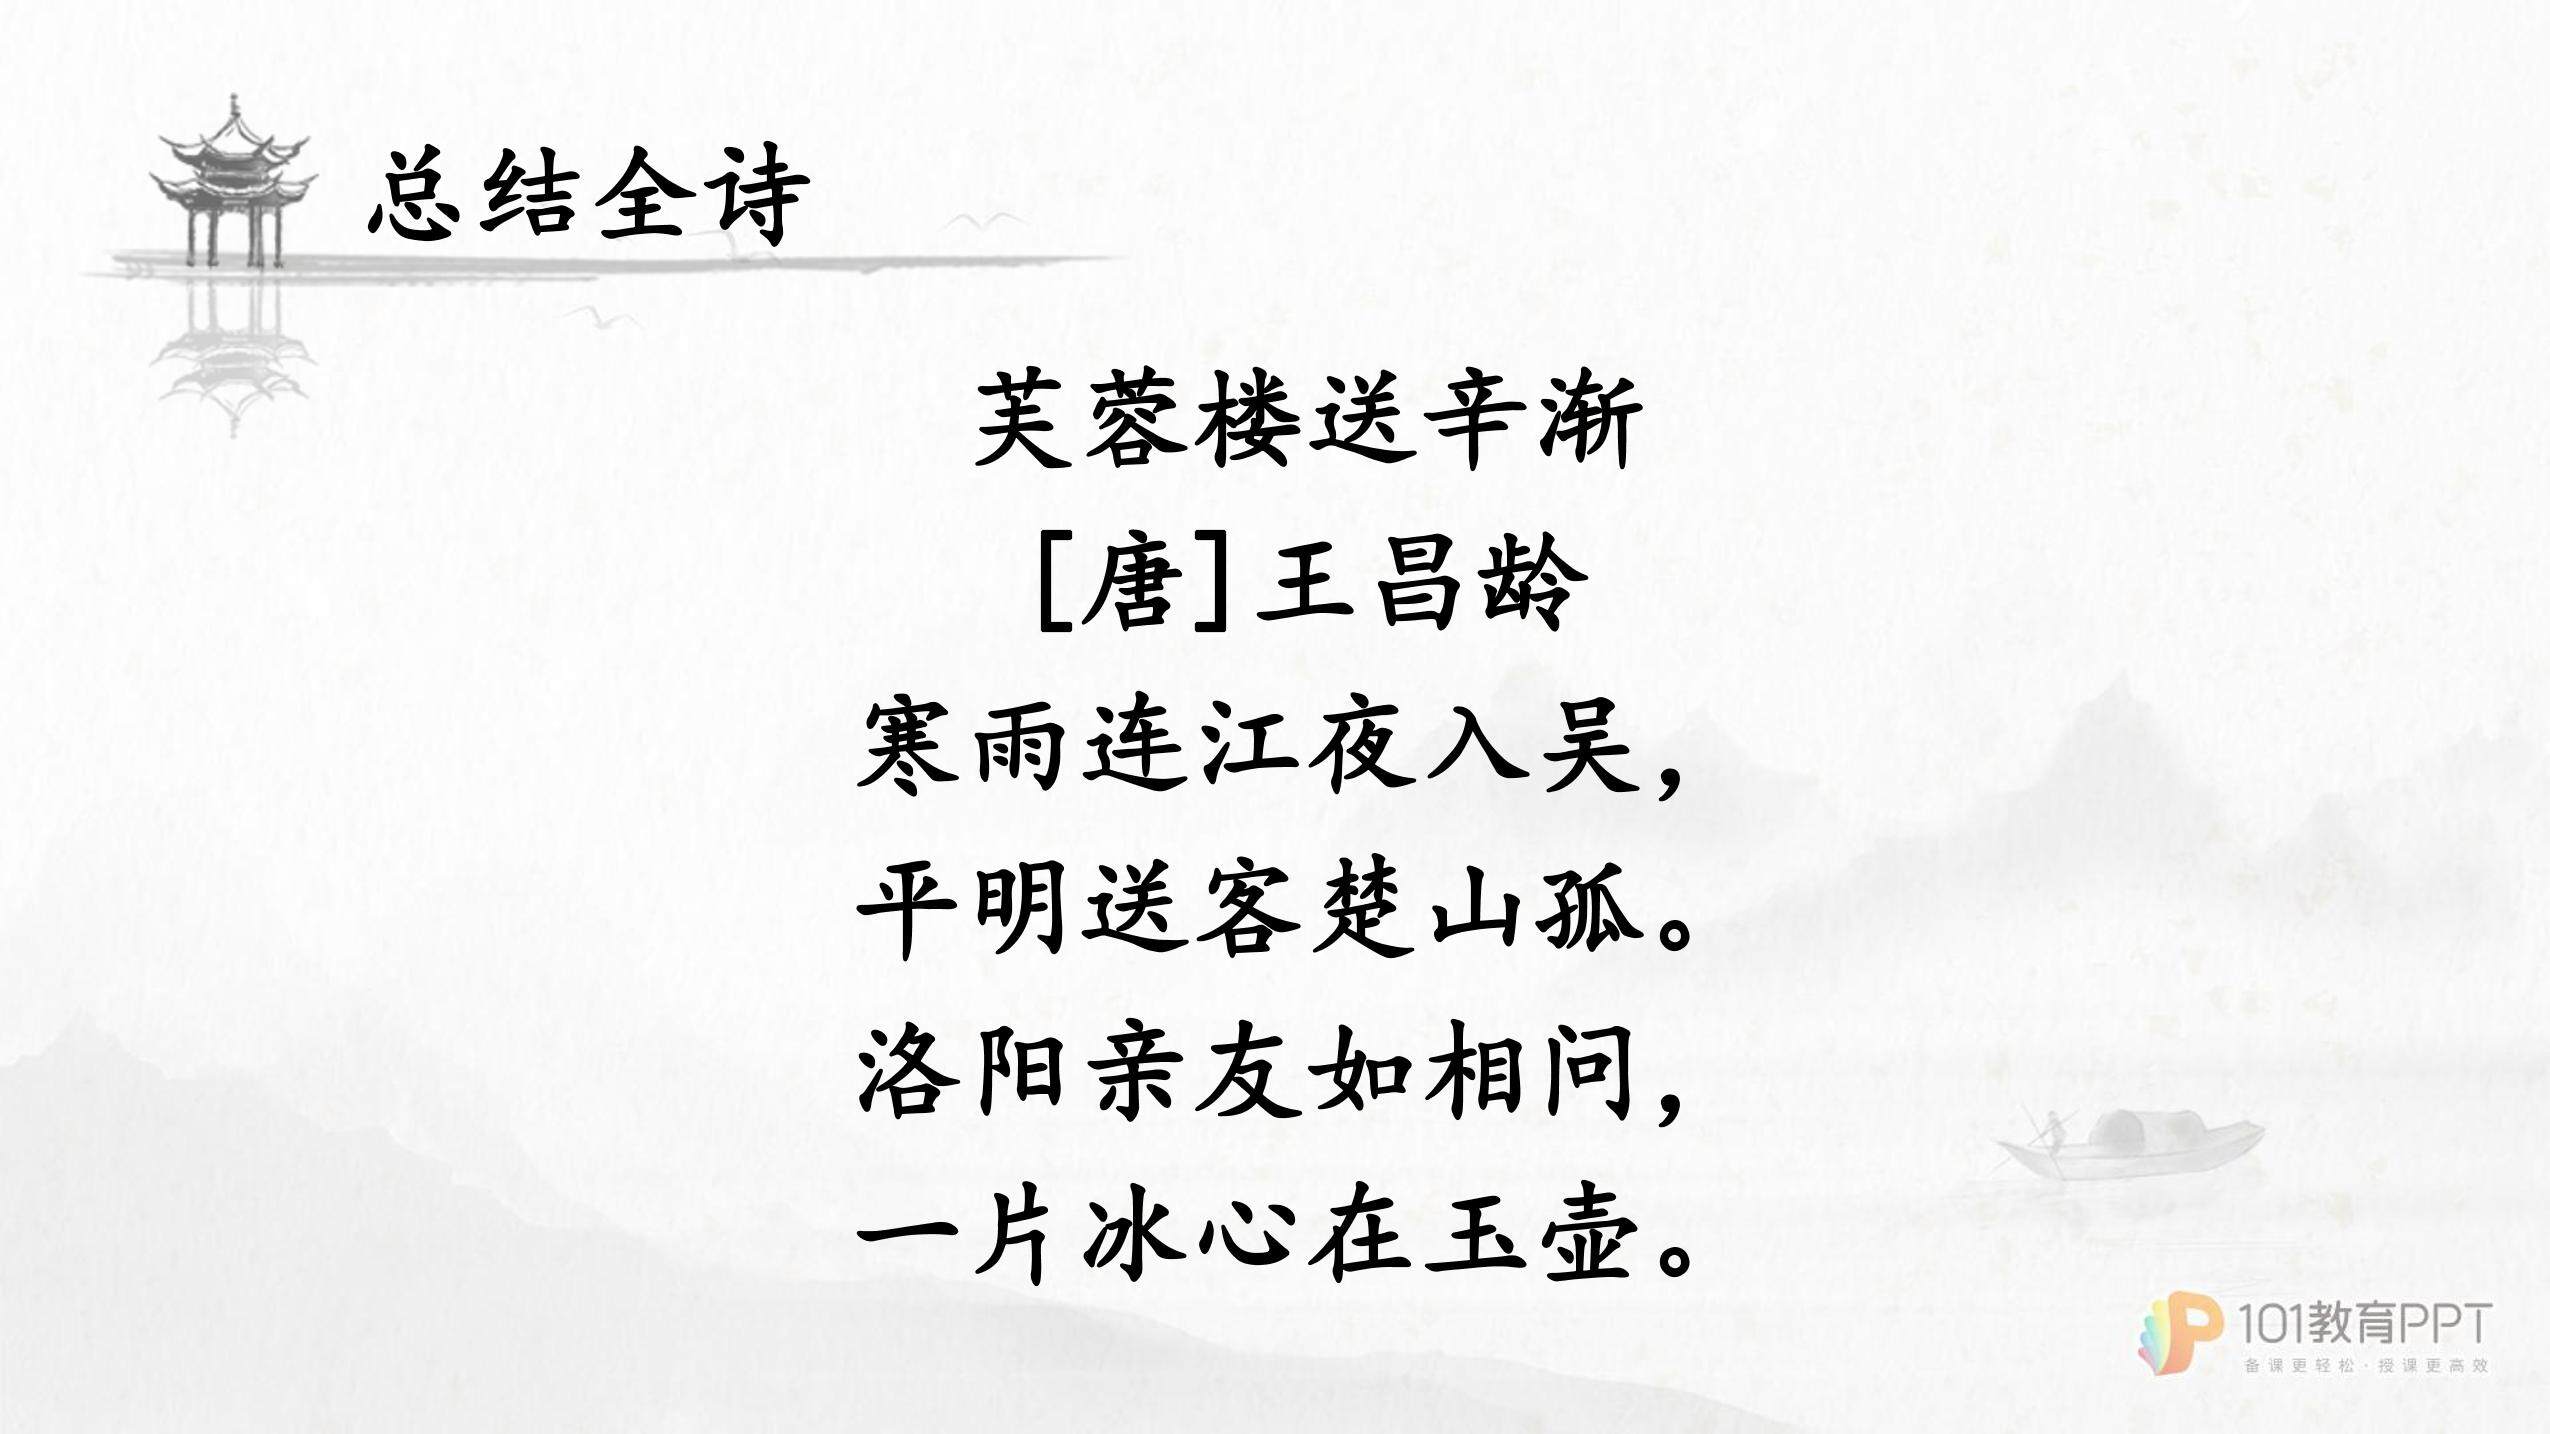 总结全诗
芙蓉楼送辛渐
[唐]王昌龄
寒雨连江夜入吴，
平明送客楚山孤。
洛阳亲友如相问，
一片冰心在玉壶。
101教育PPT
备课更轻松·授课更高效